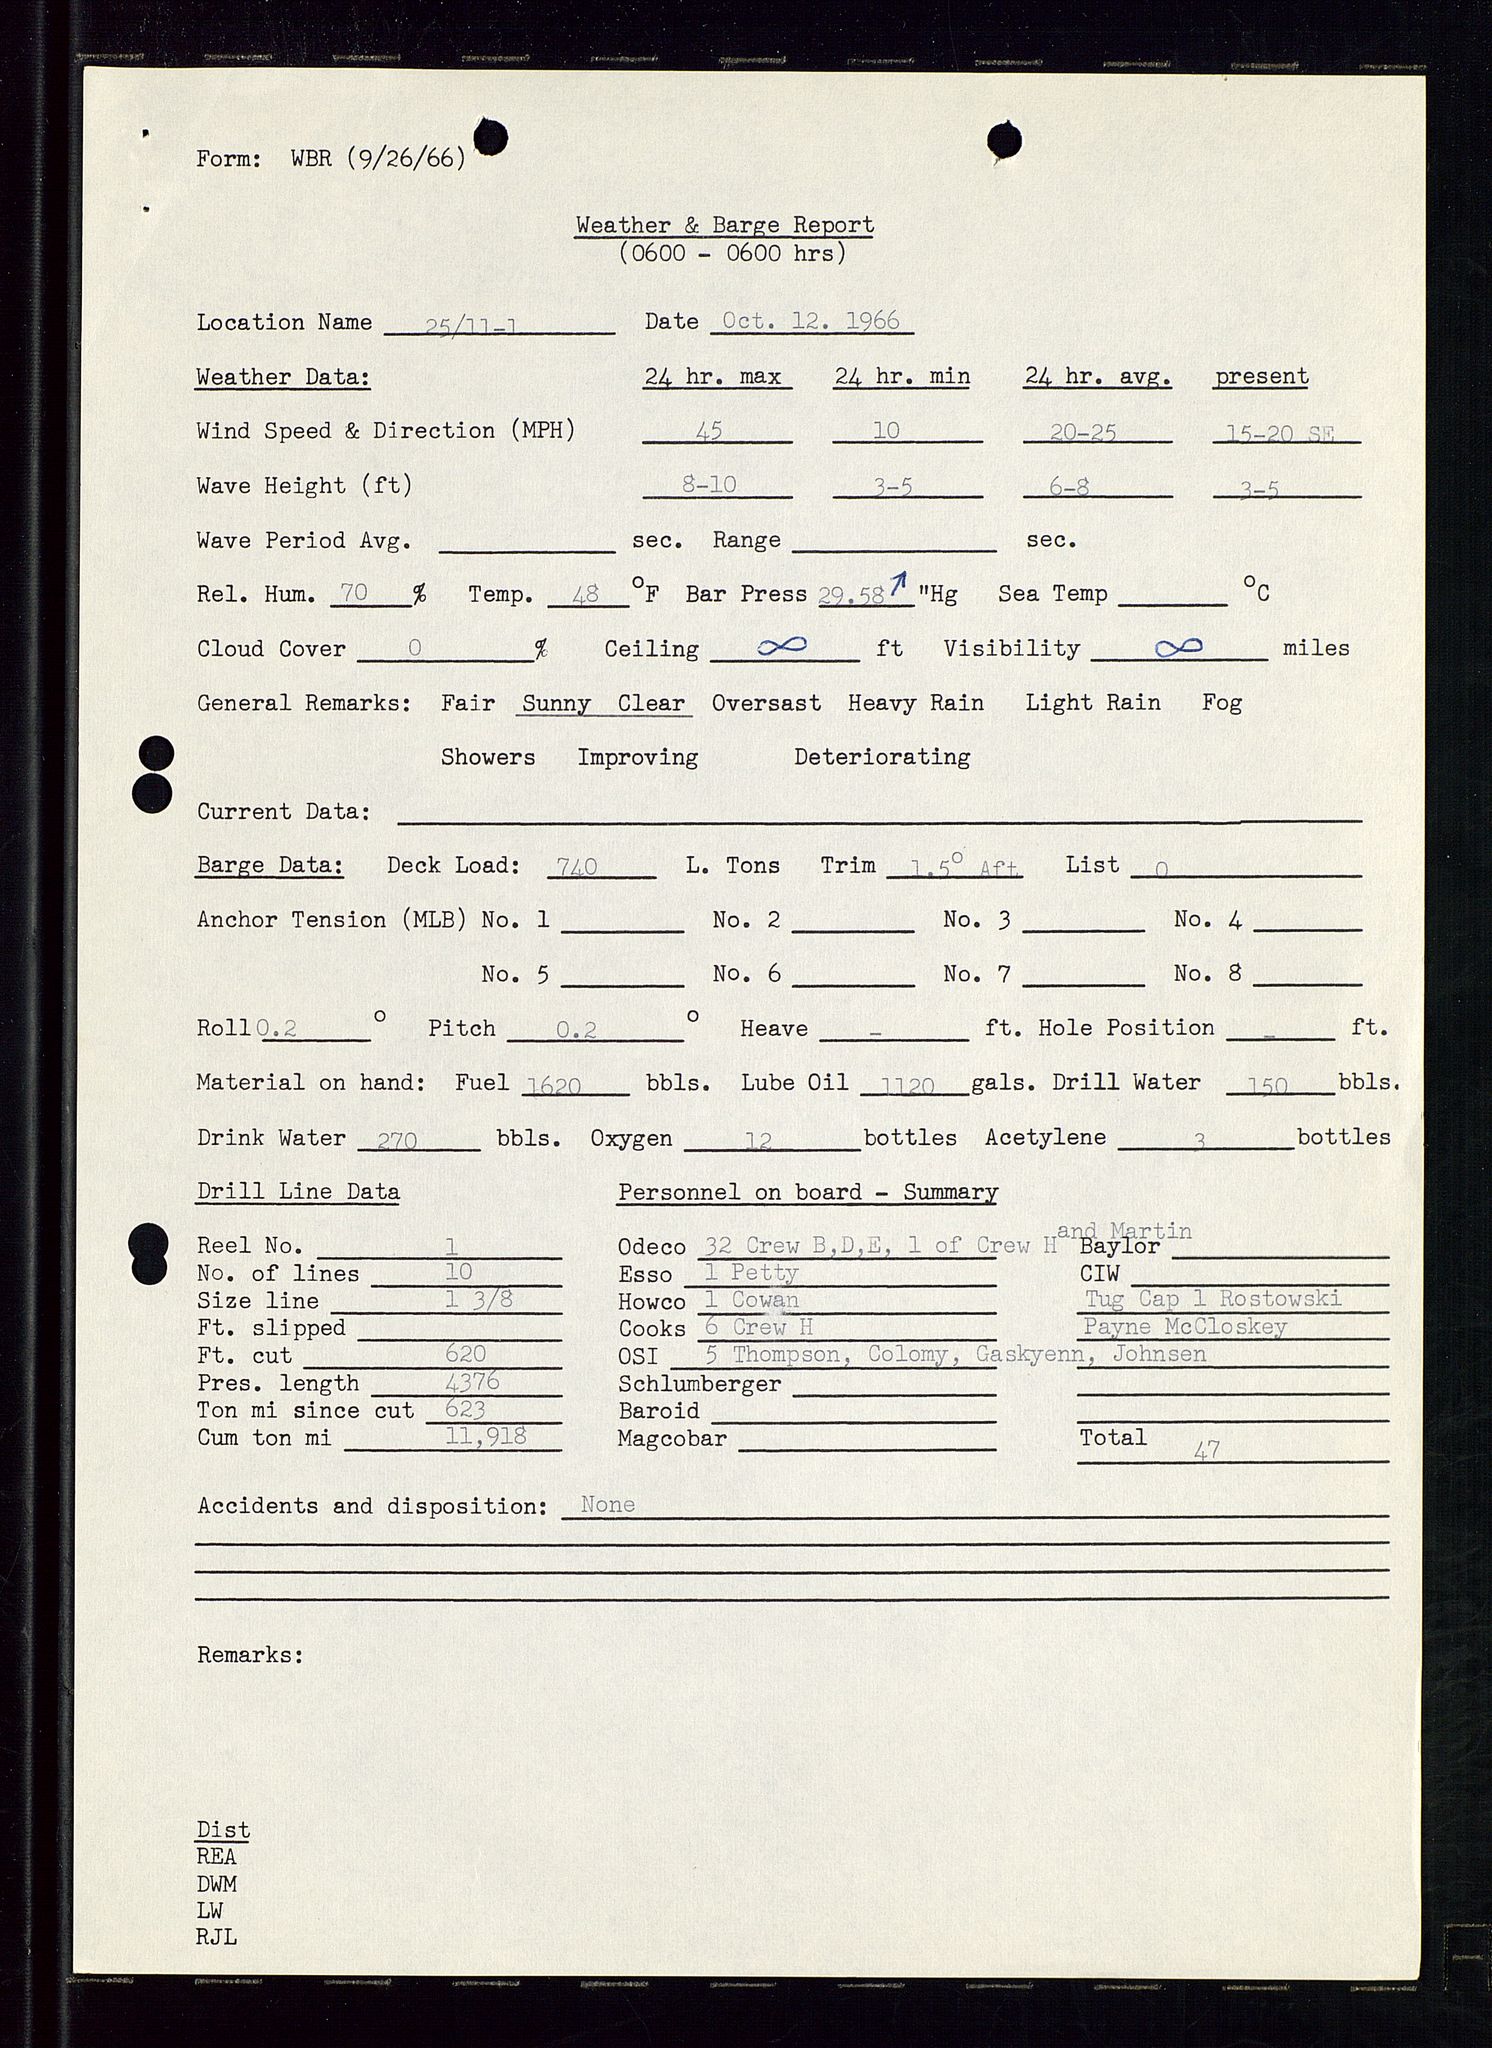 Form: WBR (9/26/66)
Weather & Barge Report
(0600 - 0600 hrs)
Location Name 25/11-1 Date Oct. 12. 1966
Weather Data: 24 hr. max 24 hr. min 24 hr. avg. present
Wind Speed & Direction (MPH) 45 10 20-25 15-20 SE
Wave Height (ft) 8-10 3-5 6-8 3-5
Wave Period Avg. sec. Range sec.
Rel. Hum. 70 % Temp. 48 °F Bar Press 29.58↗ "Hg Sea Temp °C
Cloud Cover 0 % Ceiling ∞ ft Visibility ∞ miles
General Remarks: Fair Sunny Clear Oversast Heavy Rain Light Rain Fog
Showers Improving Deteriorating
Current Data:
Barge Data: Deck Load: 740 L. Tons Trim 1.5° Aft List 0
Anchor Tension (MLB) No. 1 No. 2 No. 3 No. 4
No. 5 No. 6 No. 7 No. 8
Roll 0.2 ° Pitch 0.2 ° Heave - ft. Hole Position - ft.
Material on hand: Fuel 1620 bbls. Lube Oil 1120 gals. Drill Water 150 bbls.
Drink Water 270 bbls. Oxygen 12 bottles Acetylene 3 bottles
Drill Line Data Personnel on board - Summary
Reel No. 1 Odeco 32 Crew B,D,E, 1 of Crew H and Martin Baylor
No. of lines 10 Esso 1 Petty CIW
Size line 1 3/8 Howco 1 Cowan Tug Cap 1 Rostowski
Ft. slipped Cooks 6 Crew H Payne McCloskey
Ft. cut 620 OSI 5 Thompson, Colomy, Gaskyenn, Johnsen
Pres. length 4376 Schlumberger
Ton mi since cut 623 Baroid
Cum ton mi 11,918 Magcobar Total 47
Accidents and disposition: None
Remarks:
Dist
REA
DWM
LW
RJL